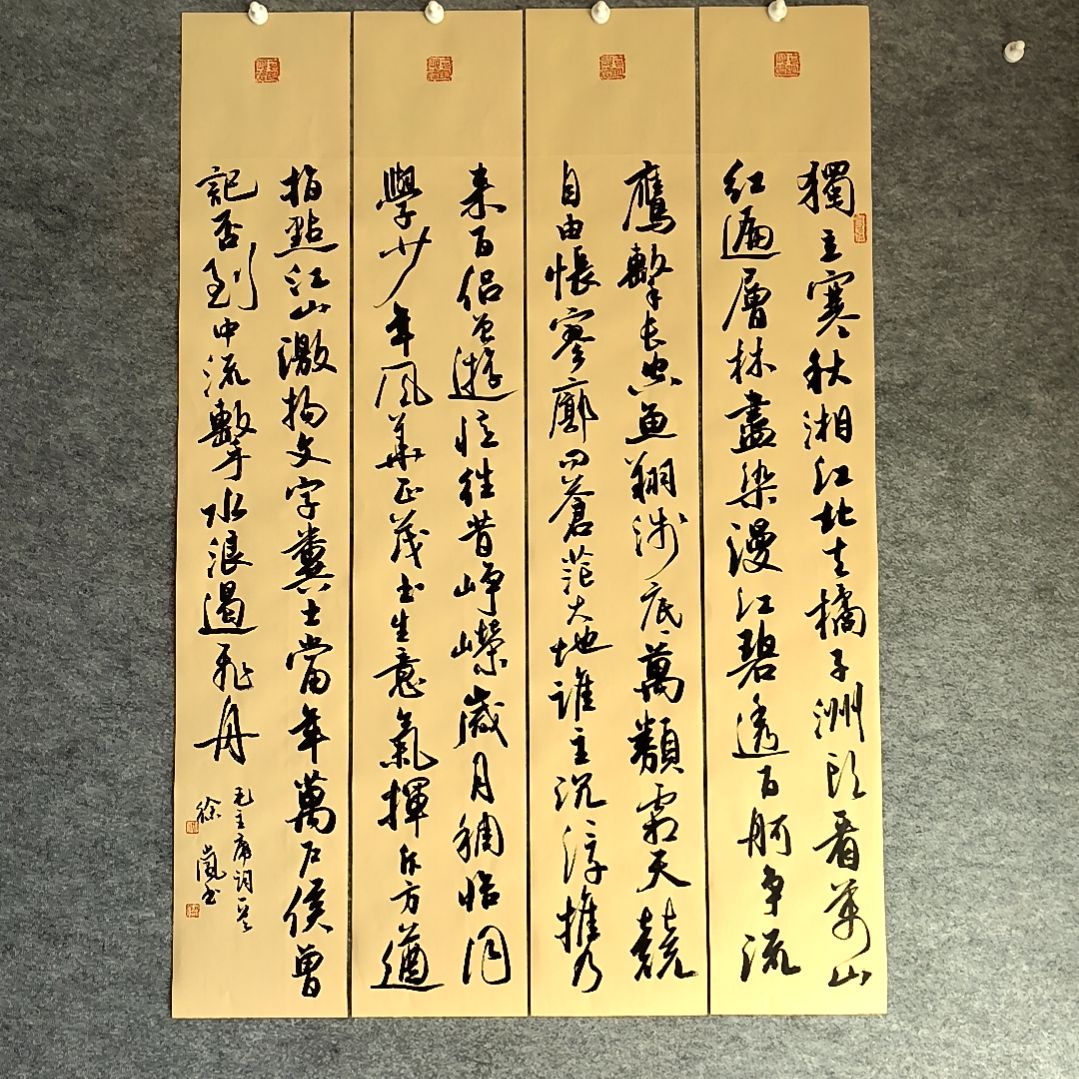 獨立寒秋湘江北去橘子洲頭看萬山
紅遍層林盡染漫江碧透百舸爭流
鷹擊長空魚翔淺底萬類霜天競
自由悵寥廓問蒼茫大地誰主沉浮携
來百侶曾遊憶往昔崢嶸歲月稠恰同
學少年風華正茂書生意氣揮斥方遒
指點江山激揚文字糞土當年萬戶侯曾
記否到中流擊水浪遏飛舟
毛主席詞一首
徐嵐書